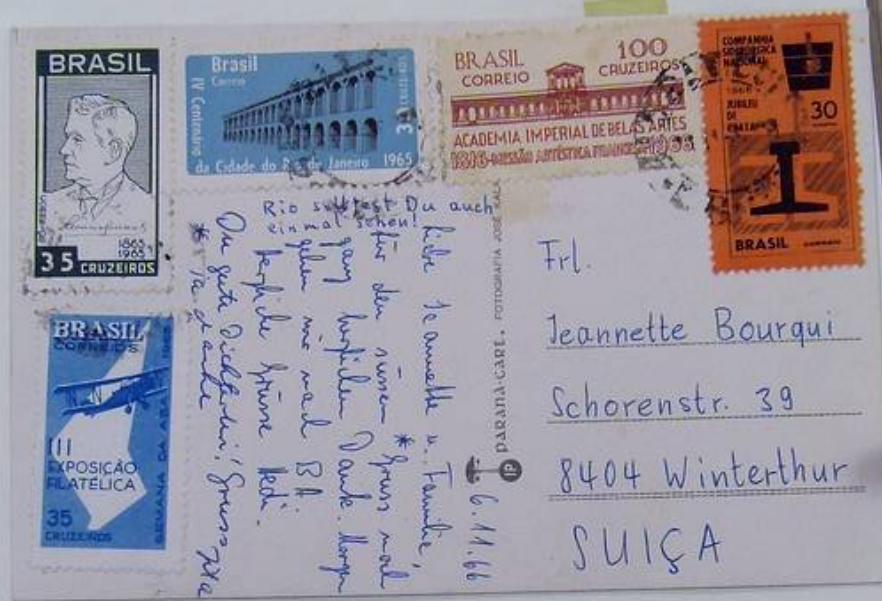 BRASIL
EPITACIO PESSOA
1865
1965
35 CRUZEIROS
Brasil
Correio
IV Centenário
da Cidade do Rio de Janeiro 1965
CRUZEIROS
BRASIL
CORREIO
100
CRUZEIROS
ACADEMIA IMPERIAL DE BELAS ARTES
1816-MISSÃO ARTÍSTICA FRANCESA-1966
COMPANHIA
SIDERÚRGICA
NACIONAL
1966
JUBILEU
DE
PRATA
30
BRASIL
CORREIO
BRASIL
CORREIOS
III
EXPOSIÇÃO
FILATÉLICA
35
CRUZEIROS
SEMANA DA ASA 1965
Rio solltest Du auch
einmal sehen!
6.11.66
Liebe Jeannette u. Familie,
für den süssen *Gruss mal
ganz herzlichen Dank. Morgen
gehen wir nach BA.
Herzliche Grüsse Hedi.
Du gute Dichterin! Gruss
* ja danke
PARANÁ-CART. FOTOGRAFIA JOSÉ KALK
Frl.
Jeannette Bourqui
Schorenstr. 39
8404 Winterthur
SUIÇA